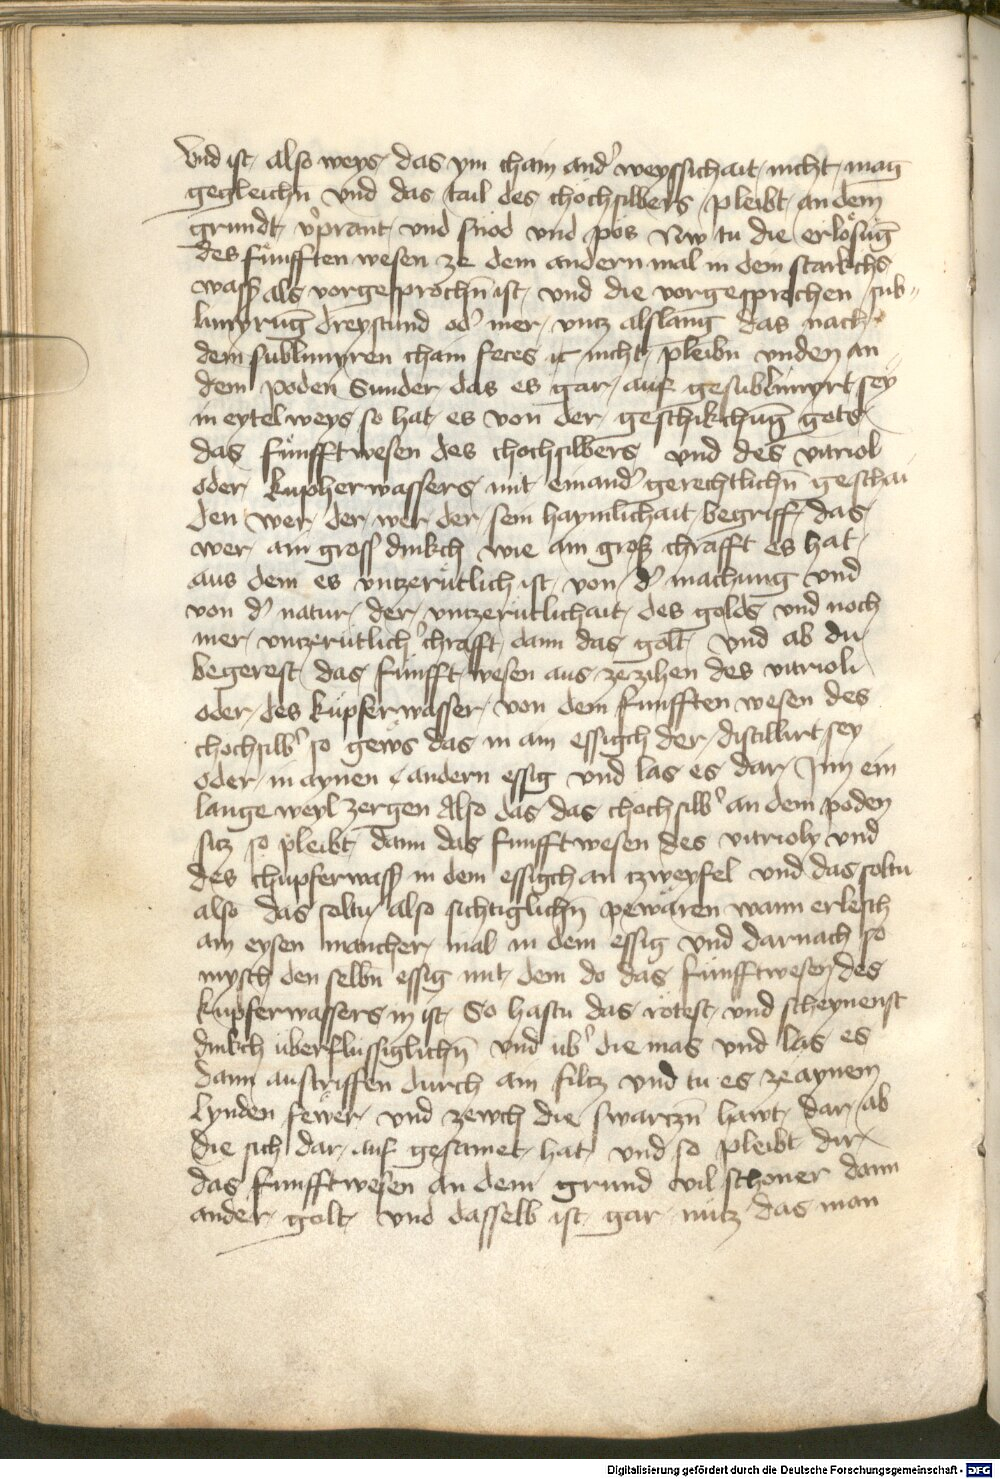 Vnd ist also weys das ym chain and' weyssichait nicht mag
gegleichn̄ vnd das tail des chochsilbers pleibt an dem
grundt v'prant vnd snöd vnd pös Nw tu die erlösūg
des fünfften wesen ze dem andern mal in dem starkchs
wasß als vorgesprochn̄ ist vnd die vorgesprochen sub-
limyrūg dreystund od' mer vntz alslang das nach
dem sublimyren chain feces it nicht pleibn vnden an
dem poden Sunder das es gar auf gesublimyrt sey
in eytel weys so hat es von der geschikchūg gots
das fünfft wesen des chochsilbers vnd des vitriol
oder kupherwassers mit einand' gerechtlichn̄ geschai
den wer der wer der sein haymlichait begriff das
wer am gross dinkch wie am groß chrafft es hat
aus dem es vntzerütlich ist von d' machung vnd
von d' natur der vntzerütlichait des golds vnd noch
mer vntzerütlich' chrafft dann das golt vnd ab du
begerest das fünfft wesen aus ze zihen des vitrioli
oder des küpferwasser von dem funfften wesen des
chochsilb' so gews das in am essigch der distillirt sey
oder in aynen andern essig vnd las es dar Inn ein
lange weyl zergen Also das das chochsilb' an dem poden
sitz so pleibt dann das funfft wesen des vitrioly vnd
des chupferwasß in dem essigch an tzweyfel vnd das soltu
also das soltu also sichtiglichn̄ pewären wann erlesch
am eysen mancher mal in dem essig vnd darnach so
mysch den selbn̄ essig mit dem do das fünfft wesen des
küpferwassers in ist So hastu das rötest vnd scheynenst
dinkch überflüssiglichn̄ vnd üb' die mas vnd las es
dann austriffen durch am filtz vnd tu es ze aynem
lynden fewer vnd zewch die swartzn̄ hawt dar ab
die sich dar auf gesamet hat vnd so pleibt dir
das funfft wesen an dem grund vil schoner dann
ander golt vnd dasselb ist gar nütz das man
Digitalisierung gefördert durch die Deutsche Forschungsgemeinschaft - DFG